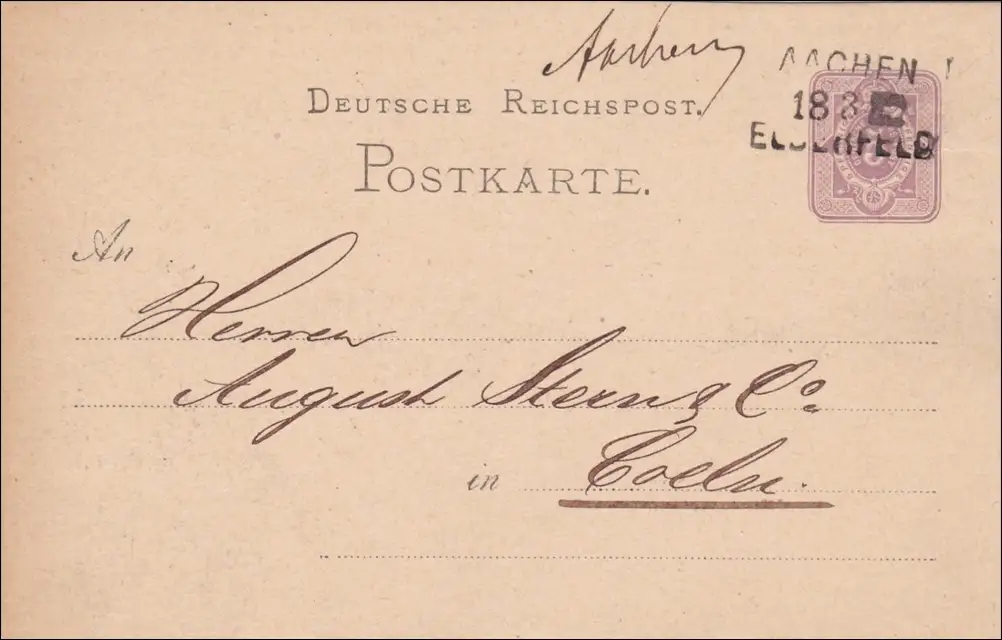 Aachen
AACHEN I
18 8
ELBERFELD
DEUTSCHE REICHSPOST.
POSTKARTE.
An
Herren
August Stern & Co.
in Coeln.